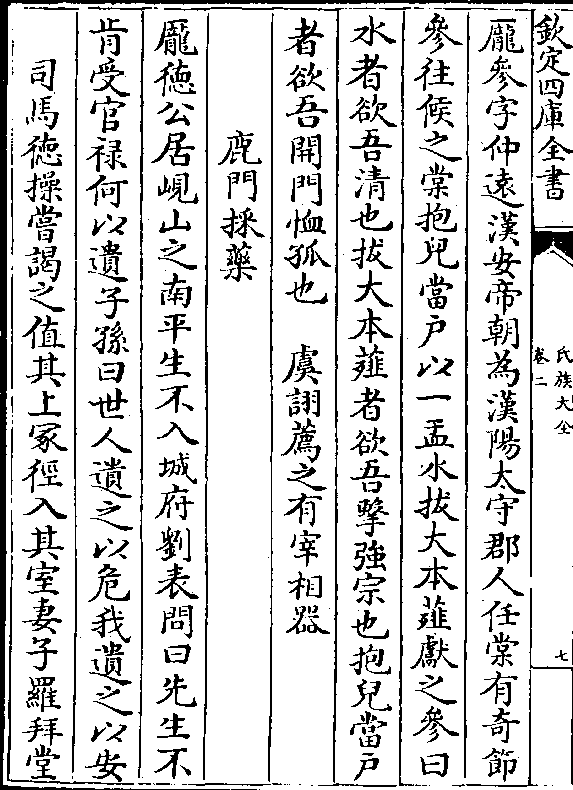 欽定四庫全書
氏族大全
卷二
七
龎參字仲逺漢安帝朝為漢陽太守郡人任棠有竒節
參往候之棠抱兒當戸以一盂水拔大本薤獻之參曰
水者欲吾清也拔大本薤者欲吾擊強宗也抱兒當戸
者欲吾開門恤孤也　虞詡薦之有宰相器
鹿門採藥
龎徳公居峴山之南平生不入城府劉表問曰先生不
肯受官禄何以遺子孫曰世人遺之以危我遺之以安
司馬徳操嘗謁之值其上冢徑入其室妻子羅拜堂